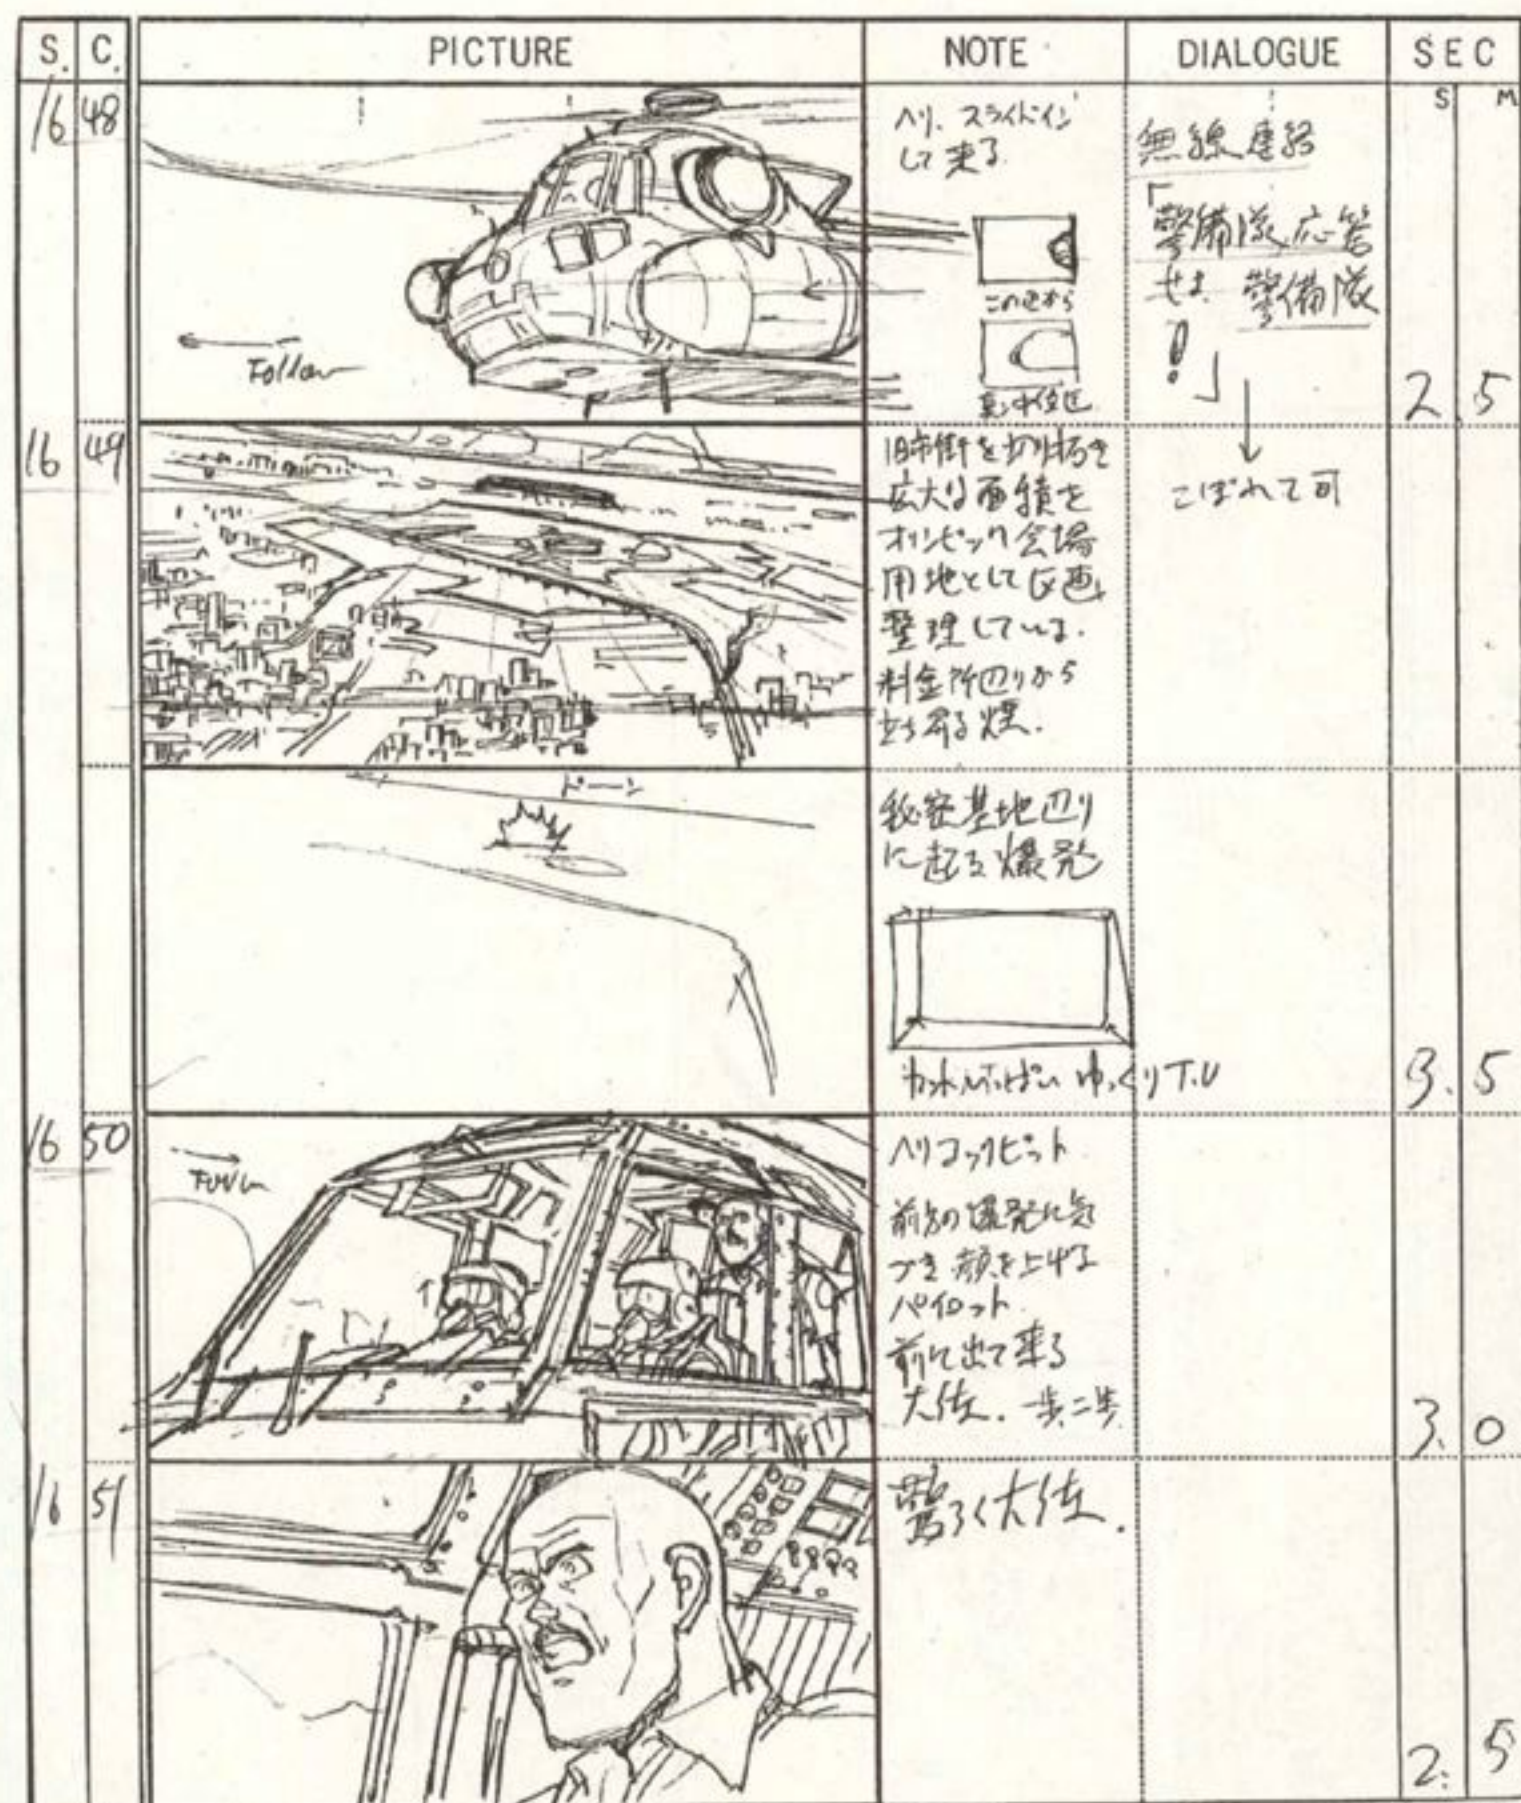 S. C. PICTURE NOTE DIALOGUE SEC
S M
16 48
Follow
ヘリ、スライドイン
して来る
この辺から
無線連絡
「警備隊応答
せよ 警備隊
!」
こぼれて可
2.5
16 49
旧市街を切り拓き
広大な面積を
オリンピック会場
用地として区画
整理している.
料金所辺りから
立ち昇る煙.
ドーン
秘密基地辺り
に起る爆発
カットいっぱい ゆっくりT.U
3.5
16 50
Follow
ヘリコックピット
前方の爆発に気
づき顔を上げる
パイロット
前に出て来る
大佐.一歩二歩
3.0
16 51
驚く大佐.
2.5